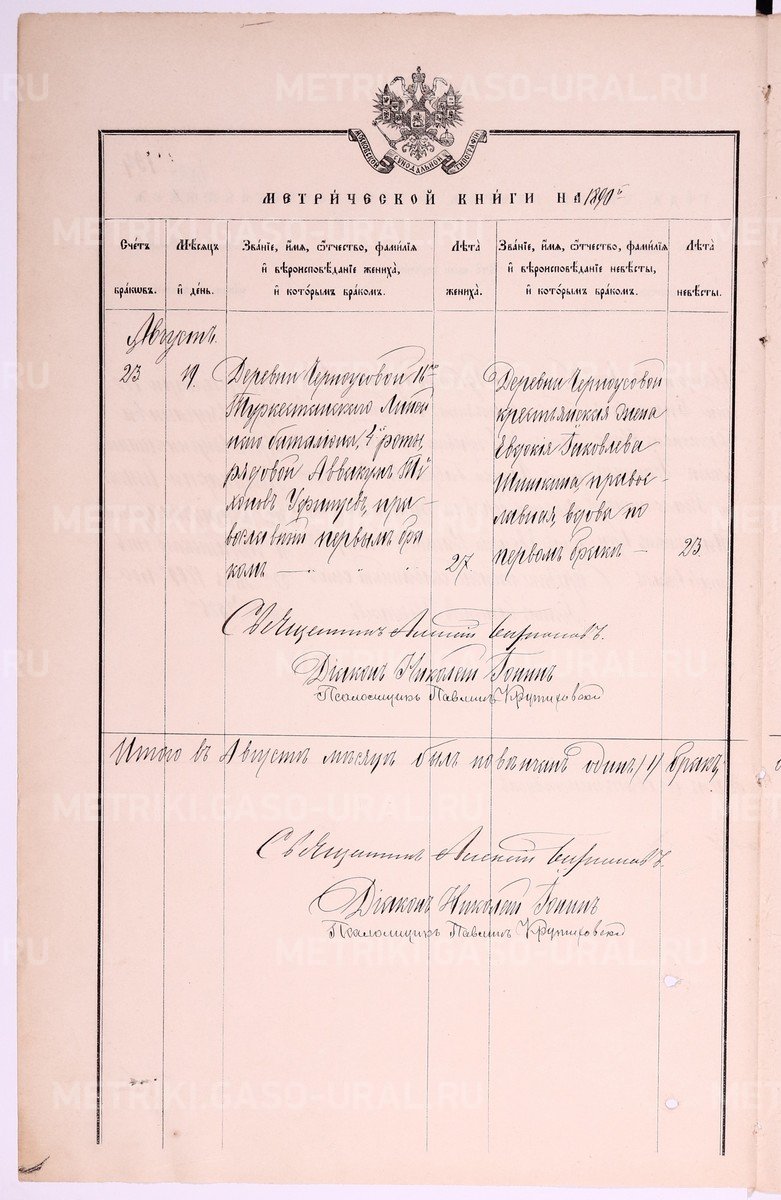 МОСКОВСКОЙ СѴНОДАЛЬНОЙ ТИПОГРАФІИ
МЕТРИ́ЧЕСКОЙ КНИ́ГИ НА 1890 й
Сче́тъ бра́кѡвъ.
Мѣ́сяцъ и҆ де́нь.
Зва́нїе, и҆́мя, ѻ҆́тчество, фами́лїя и҆ вѣроисповѣ́данїе жениха̀, и҆ кото́рымъ бра́комъ.
Лѣ́та жениха̀.
Зва́нїе, и҆́мя, ѻ҆́тчество, фами́лїя и҆ вѣроисповѣ́данїе невѣ́сты, и҆ кото́рымъ бра́комъ.
Лѣ́та невѣ́сты.
Августъ.
23
19
Деревни Черноусовой
Туркестанскаго Линей
наго баталіона, роты,
рядовой Аввакумъ Ти
хоновъ пра-
вославный первымъ бра
комъ —
27
Деревни Черноусовой
крестьянская жена
Евдокія Яковлева
Шишкина, правос-
лавная, вдова по
первомъ бракѣ —
23
Священникъ Алексій
Діаконъ Николай Гонинъ
Псаломщикъ Павлинъ Крутиховскій
Итого въ Августѣ мѣсяцѣ былъ повѣнчанъ одинъ /1/ бракъ,
Священникъ Алексій
Діаконъ Николай Гонинъ
Псаломщикъ Павлинъ Крутиховскій
METRIKI.GASO-URAL.RU